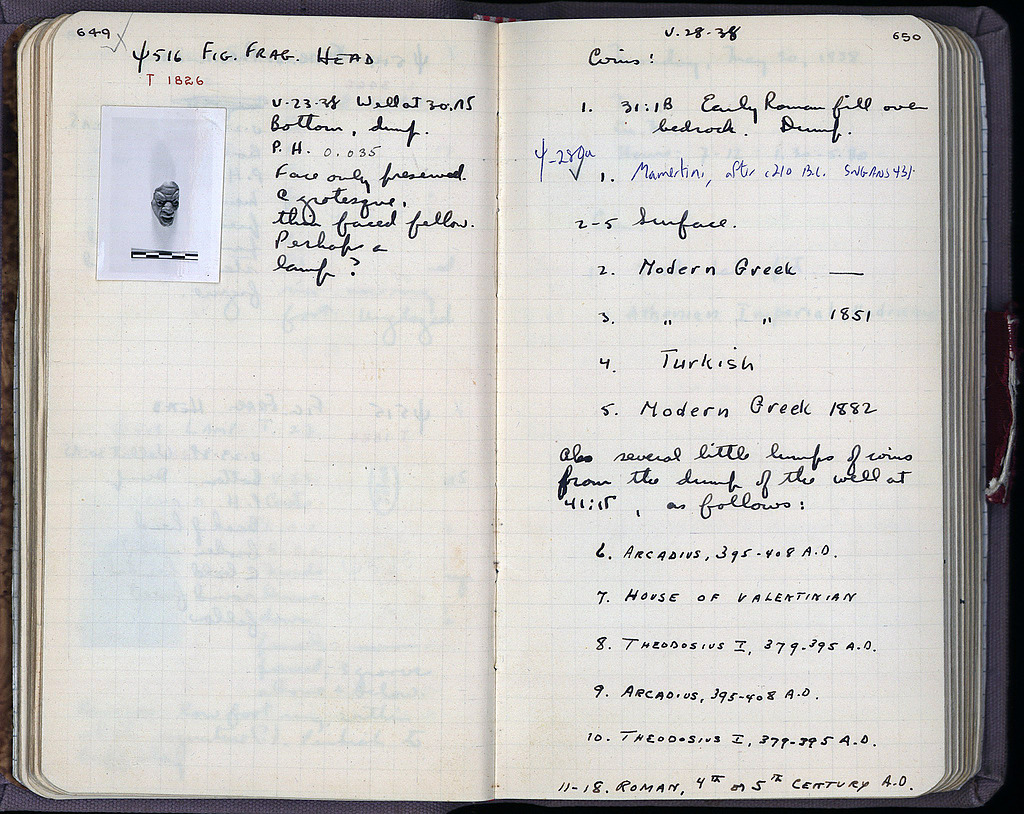 649
Ψ516 FIG. FRAG. HEAD
T 1826
V-23-38 Well at 30/ΛΕ
Bottom, dump.
P.H. 0.035
Face only preserved.
A grotesque,
thin faced fellow.
Perhaps a
lamp?
V-28-38
650
Coins:
1. 31:ΙΒ Early Roman fill over
bedrock. Dump.
Ψ-289a
1. Mamertini, after c210 B.C. SNGANS 431.
2-5 Surface.
2. Modern Greek —
3. " " 1851
4. Turkish
5. Modern Greek 1882
Also several little lumps of coins
from the dump of the well at
, as follows:
6. ARCADIUS, 395-408 A.D.
7. HOUSE OF VALENTINIAN
8. THEODOSIUS I, 379-395 A.D.
9. ARCADIUS, 395-408 A.D.
10. THEODOSIUS I, 379-395 A.D.
11-18. ROMAN, 4TH or 5TH CENTURY A.D.